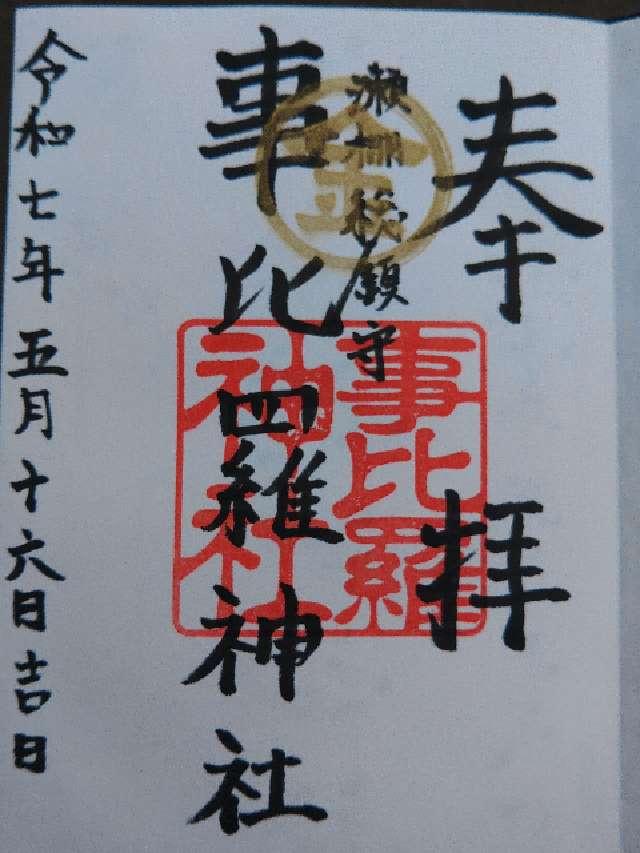 奉拝
瀬棚総鎮守
金
事比羅神社
事比羅神社
令和七年五月十六日吉日